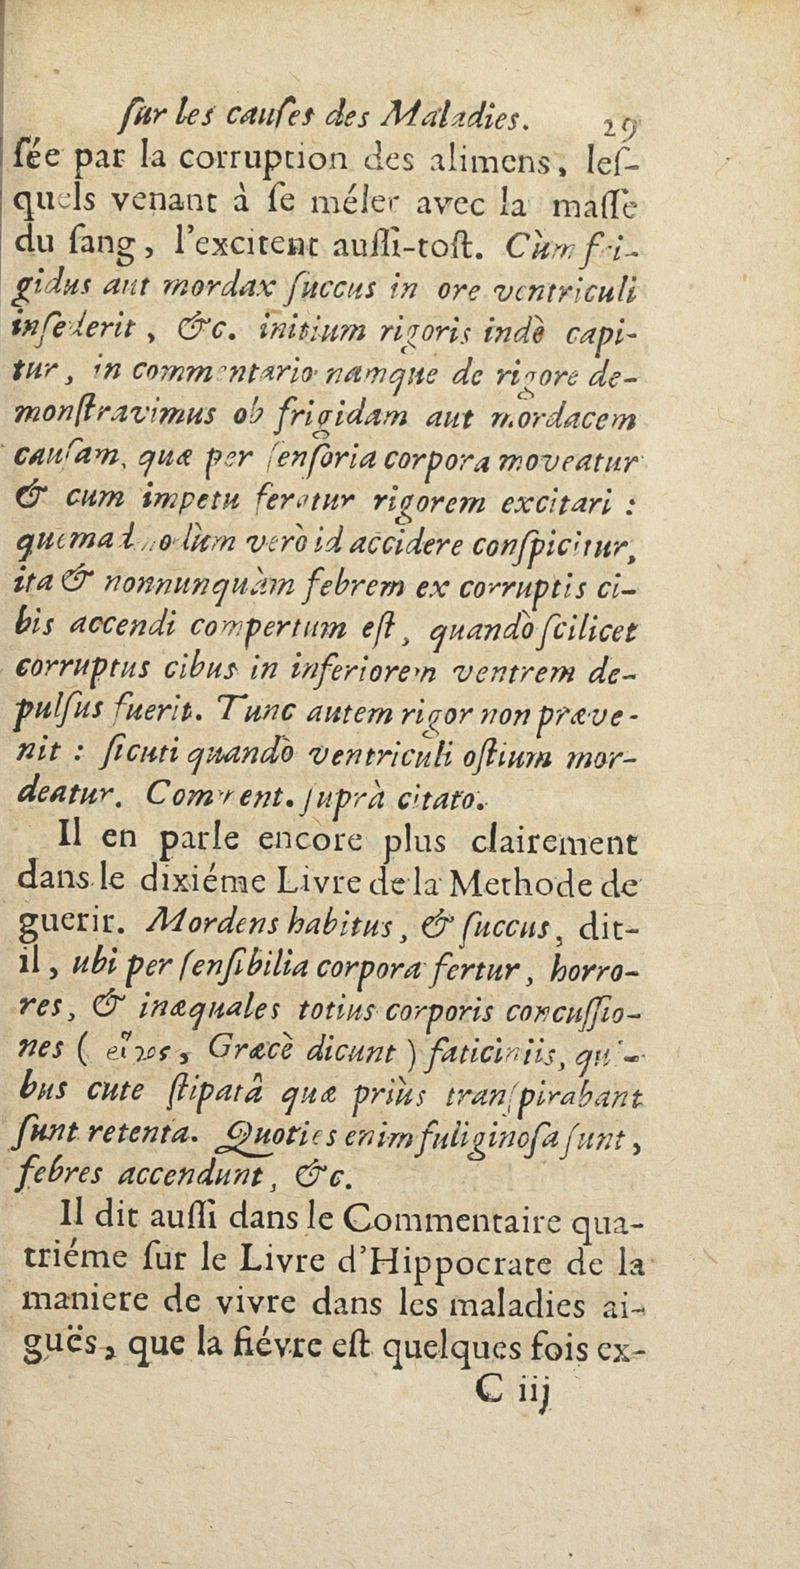 ſur les cauſes des Maladies. 29
ſée par la corruption des alimens, leſ-
quels venant à ſe méler avec la maſſe
du ſang, l'excitent auſſi-toſt. Cùm fri-
gidus aut mordax ſuccus in ore ventriculi
inſederit, &c. initium rigoris indè capi-
tur, in commentario namque de rigore de-
monſtravimus ob frigidam aut mordacem
cauſam, quæ per ſenſoria corpora moveatur
& cum impetu feratur rigorem excitari :
quemadmodùm verò id accidere conſpicitur,
ita & nonnunquàm febrem ex corruptis ci-
bis accendi compertum eſt, quandò ſcilicet
corruptus cibus in inferiorem ventrem de-
pulſus fuerit. Tunc autem rigor non præve-
nit : ſicuti quandò ventriculi oſtium mor-
deatur. Comment. ſuprà citato.
Il en parle encore plus clairement
dans le dixiéme Livre de la Methode de
guerir. Mordens habitus, & ſuccus, dit-
il, ubi per ſenſibilia corpora fertur, horro-
res, & inæquales totius corporis concuſſio-
nes ( Græcè dicunt ) faticiniis, qui-
bus cute ſtipatâ quæ priùs tranſpirabant
ſunt retenta. Quoties enim fuliginoſa ſunt,
febres accendunt, &c.
Il dit auſſi dans le Commentaire qua-
triéme ſur le Livre d'Hippocrate de la
maniere de vivre dans les maladies ai-
guës, que la fiévre eſt quelques fois ex-
C iij